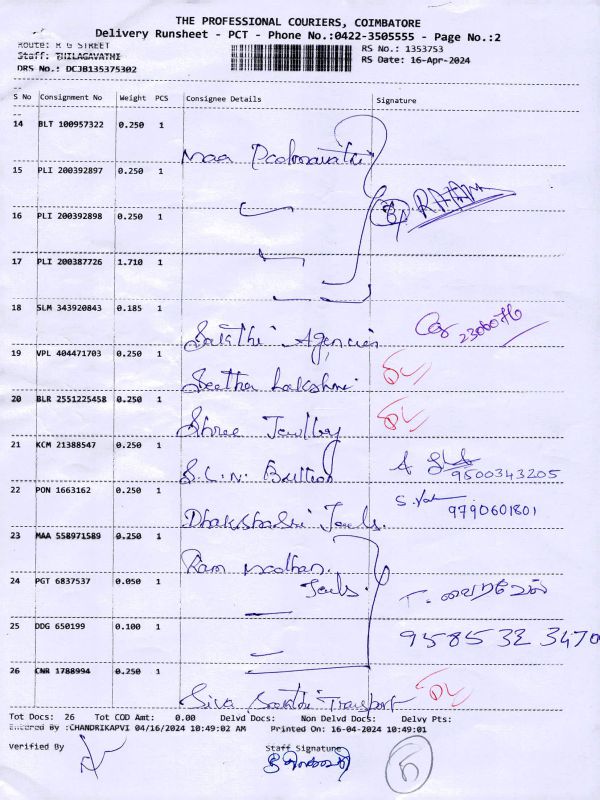 THE PROFESSIONAL COURIERS, COIMBATORE
Delivery Runsheet - PCT - Phone No.:0422-3505555 - Page No.:2
Route: R G STREET
RS No.: 1353753
Staff: THILAGAVATHI
RS Date: 16-Apr-2024
DRS No.: DCJB135375302
S No Consignment No Weight PCS Consignee Details Signature
14 BLT 100957322 0.250 1
Maa Padmavathi
15 PLI 200392897 0.250 1
RATAN
16 PLI 200392898 0.250 1
17 PLI 200387726 1.710 1
18 SLM 343920843 0.185 1
Sakthi Agencies 2300076
19 VPL 404471703 0.250 1
Seetha Lakshmi
20 BLR 2551225458 0.250 1
Shree
21 KCM 21388547 0.250 1
S.L.N. Bullion 9500343205
22 PON 1663162 0.250 1
9790601801
Jewels.
23 MAA 558971589 0.250 1
Ram
24 PGT 6837537 0.050 1
Jewels.
25 DDG 650199 0.100 1
9585 32 3470
26 CNR 1788994 0.250 1
Siva Sakthi Transport
Tot Docs: 26 Tot COD Amt: 0.00 Delvd Docs: Non Delvd Docs: Delvy Pts:
Entered By :CHANDRIKAPVI 04/16/2024 10:49:02 AM Printed On: 16-04-2024 10:49:01
Verified By Staff Signature